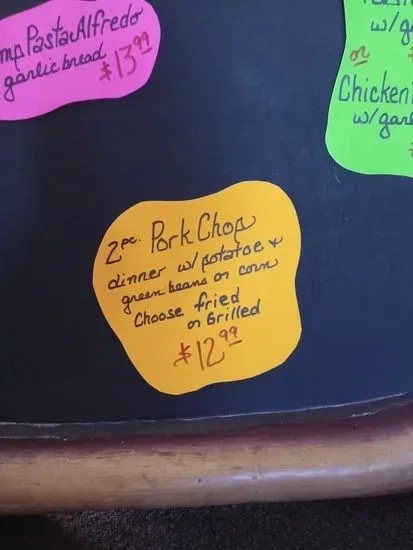 Pasta Alfredo
garlic bread $13.99
w/
or
Chicken
w/
2 pc. Pork Chop
dinner w/ potatoe +
green beans or corn
Choose fried
or Grilled
$12.99